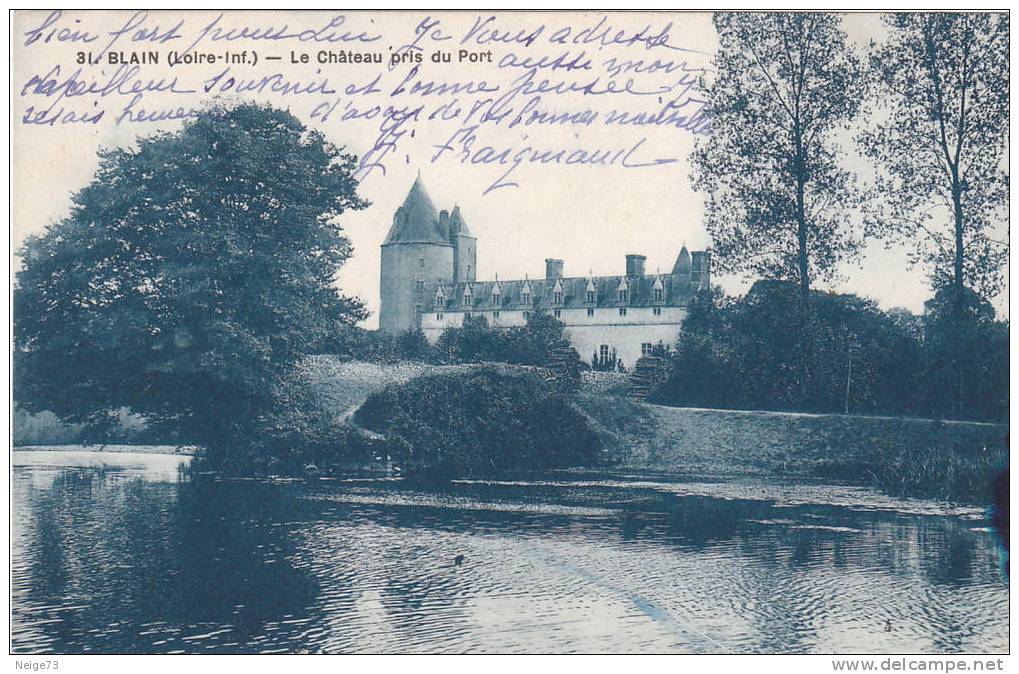 bien fort pour Luc Je Vous adresse
31. BLAIN (Loire-Inf.) — Le Château pris du Port
aussi mon
meilleur souvenir et bonne pensée
serais heureux d'avoir de Vos bonnes nouvelles
J. Fraigniaud
4
Neige73
www.delcampe.net